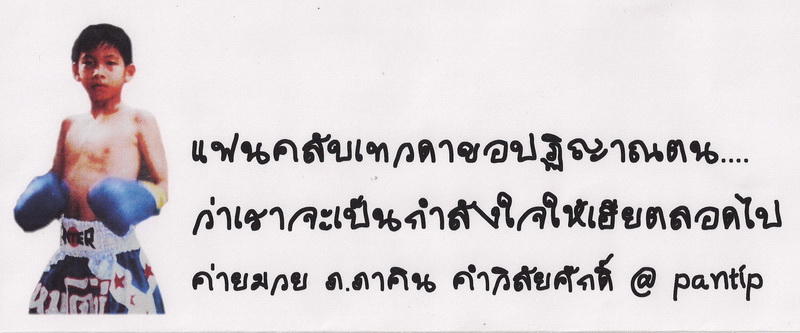 แฟนคลับเทวดาขอปฏิญาณตน....
ว่าเราจะเป็นกำลังใจให้เฮียตลอดไป
ค่ายมวย ภ.ภาคิน คำวิลัยศักดิ์ @ pantip
NTER